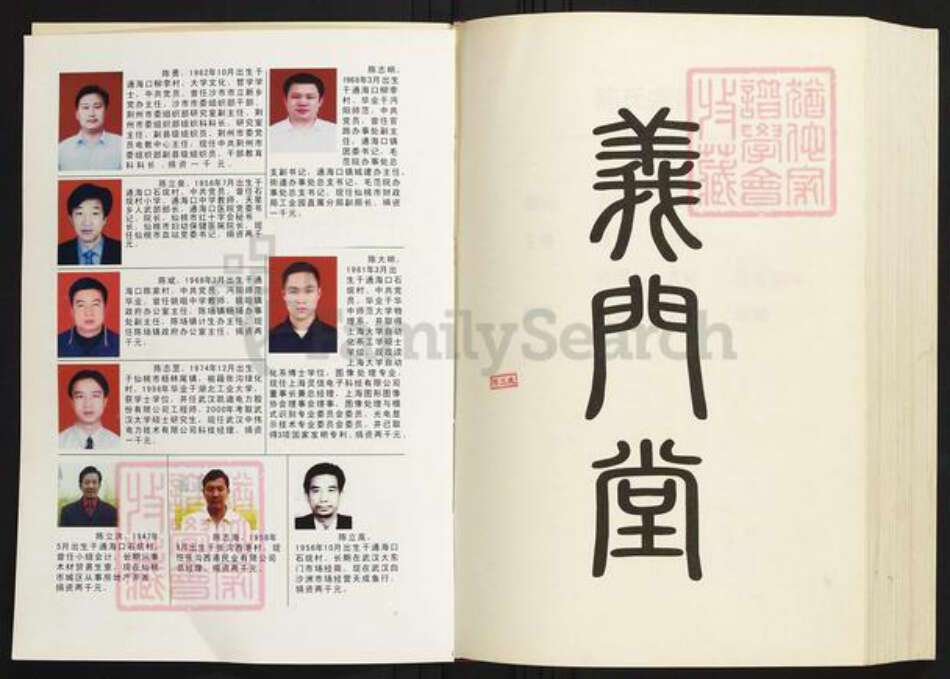 陈勇，1962年10月出生于
通海口柳李村，大学文化，哲学学
士，中共党员，曾任沙市市立新乡
党办主任，沙市市委组织部干部，
荆州市委组织部研究室副主任，荆
州市委组织部组织科科长、研究室
主任，副县级组织员，荆州市委党
员电教中心主任，现任中共荆州市
委组织部副县级组织员、干部教育
科科长，捐资一千元。
陈立泉，1956年7月出生于
通海口石垸村，中共党员，曾任石
垸村小学、通海口中学教师，天星
乡人武部部长，通海口医院党委书
记、院长，仙桃市红十字会秘书
长，仙桃市妇幼保健医院院长，现
任仙桃市血站党委书记，捐资两千
元。
陈斌，1968年3月出生于通
海口陈家村，中共党员，沔阳师范
毕业，
政府办公室主任，陈场镇杨场办事
处副主任，陈场镇计生办主任，现
任陈场镇政府办公室主任，捐资两
千元。
陈志罡，1974年12月出生
于仙桃市杨林尾镇，祖籍张沟绿化
村，1996年毕业于湖北工业大学，
获学士学位，并任武汉凯迪电力股
份有限公司工程师，2000年考取武
汉大学硕士研究生，现任武汉中伟
电力技术有限公司科技经理，捐资
一千元。
陈志明，
1966年3月出生
于通海口柳李
村，毕业于沔
阳师范，中共
党员，曾任官
路办事处副主
任，通海口镇
团委书记，毛
范院办事处总
支副书记，通海口镇城建办主任，
街道办事处总支书记，毛范院办
事处总支书记，现任仙桃市财政
局工业园直属分局副局长，捐资
一千元。
陈大明，
1981年3月出
生于通海口石
垸村，中共党
员，毕业于华
中师范大学物
理系，并取得
上海大学自动
化系工学硕士
学位，现攻读
上海大学自动
化系博士学位，图像处理专业，
现任上海灵信电子科技有限公司
董事长兼总经理，上海图形图像
协会理事会理事，图像处理与模
式识别专业委员会委员，光电显
示技术专业委员会委员，并已取
得3项国家发明专利，捐资两千元。
陈立洪，1947年
5月出生于通海口石垸村，
曾任小组会计，长期从事
木材贸易生意，现在仙桃
市城区从事房地产开发，
捐资两千元。
陈志海，1956年
总经理，捐资两千元。
陈立高，
1956年10月出生于通海口
石垸村，长期在武汉大东
门市场经商，现在武汉白
沙洲市场经营天成鱼行，
捐资两千元。
FamilySearch
義門堂
猶他家
譜學會
收藏